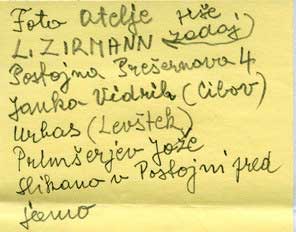 Foto atelje piše
L. ZIRMANN zadaj)
Postojna Prešernova 4
Janka Vidrih (Cibov)
Urbas (Levštek)
Primšerjev Jože
Slikano v Postojni pred
jamo